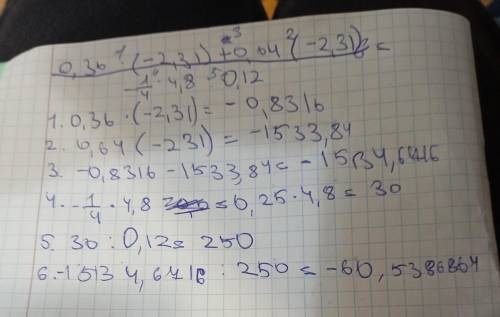 0,36 · (-2,31) + 0,64 · (-2,31) =
-1/4 · 4,8 : 0,12
1. 0,36 · (-2,31) = - 0,8316
2. 6,64 (-231) = -1533,84
3. -0,8316 - 1533,84 = - 1534,6716
4. -1/4 · 4,8 = 6,25 · 4,8 = 30
5. 30 : 0,12 = 250
6. -1513 4,6716 : 250 = -60,5386864